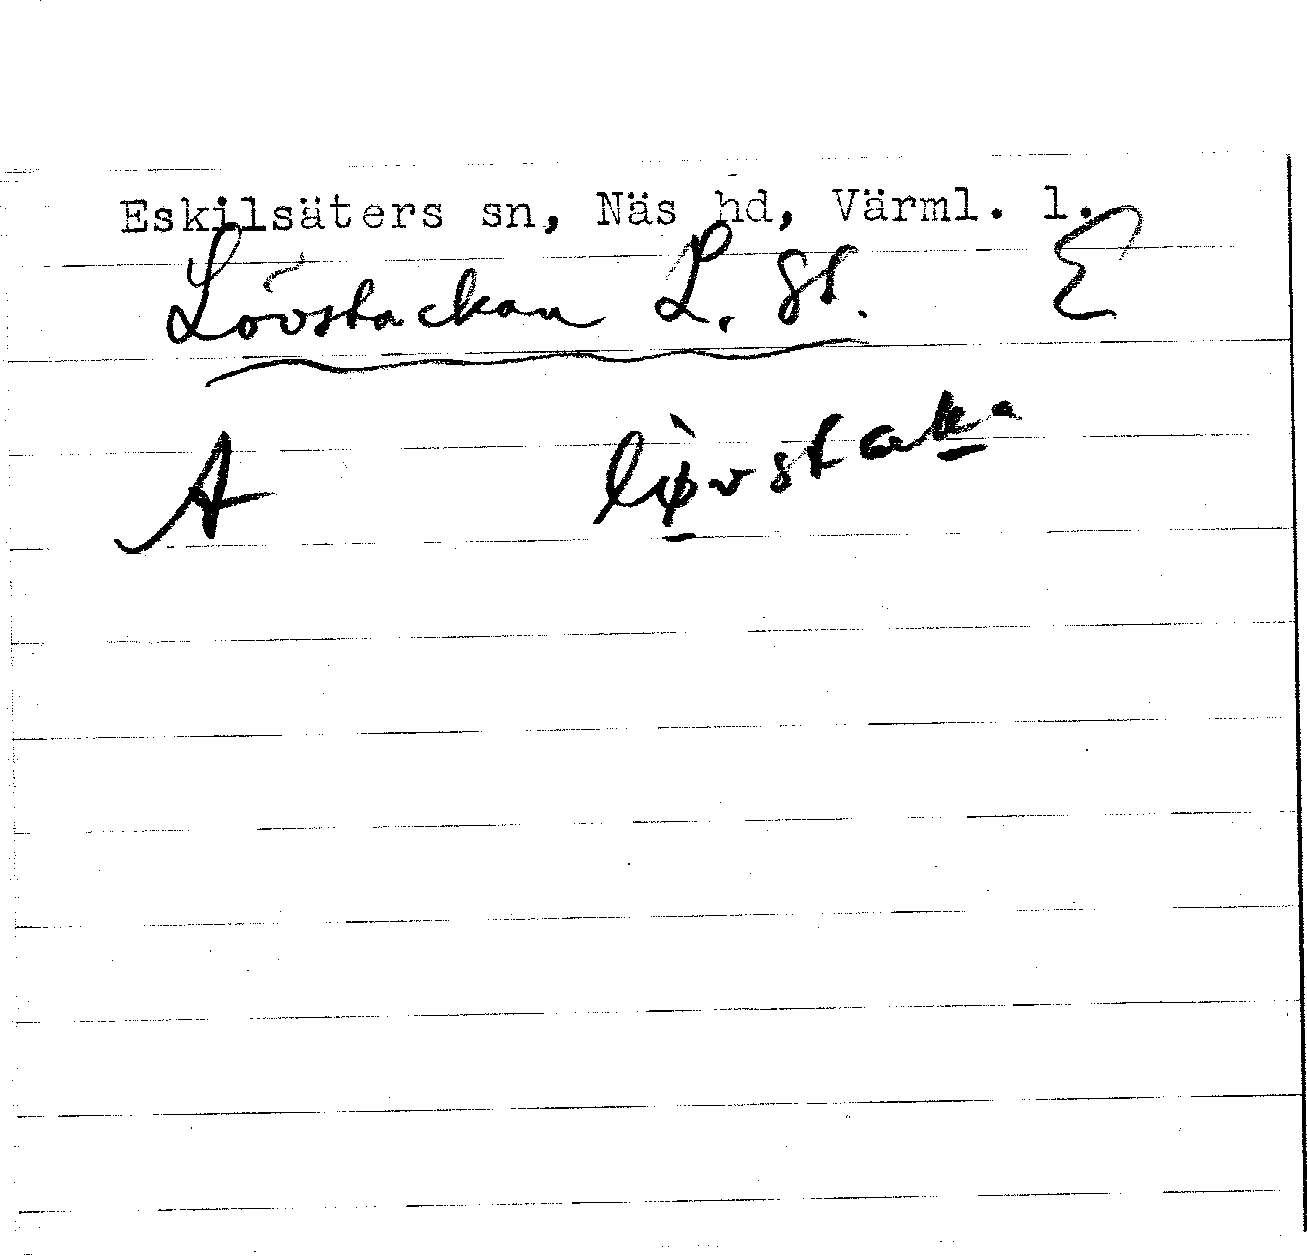 Eskilsäters sn, Näs hd, Värml. l.
Lövstackan L. St. E
A lø̀vstaka